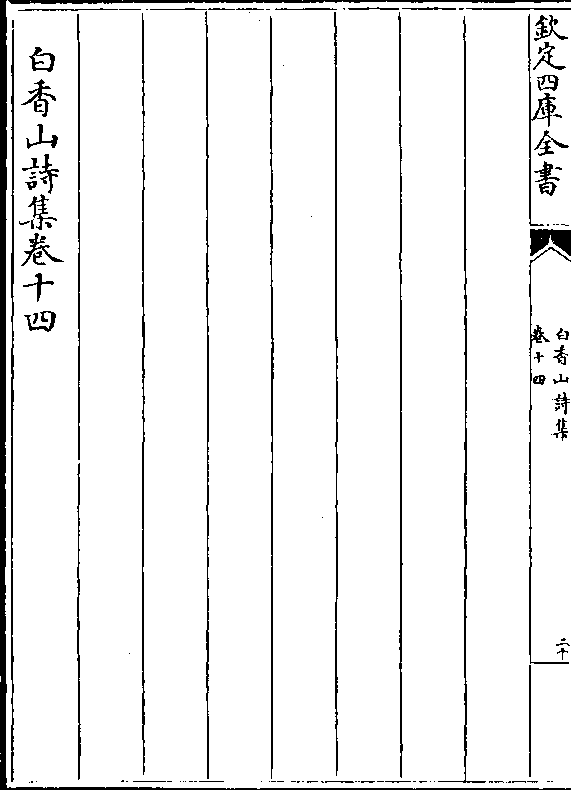 欽定四庫全書
白香山詩集
卷十四
二十
白香山詩集卷十四